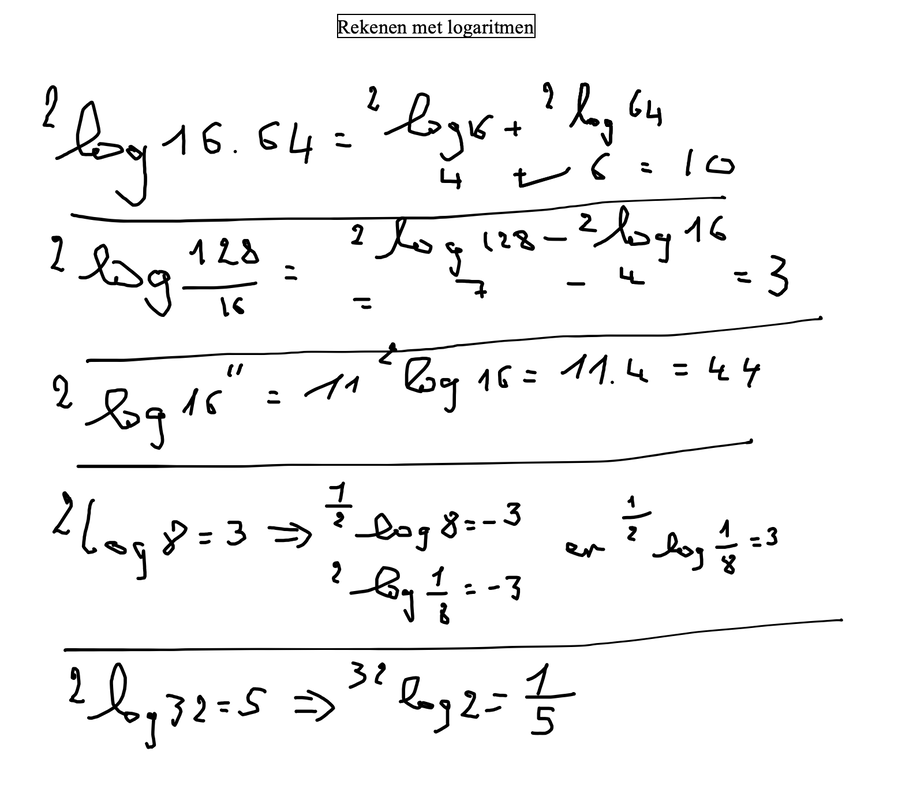 Rekenen met logaritmen
²log 16.64 = ²log 16 + ²log 64
4 + 6 = 10
²log 128/16 = ²log 128 - ²log 16
= 7 - 4 = 3
²log 16¹¹ = 11 ²log 16 = 11.4 = 44
²log 8 = 3 ⇒ ¹/²log 8 = -3 en ¹/²log 1/8 = 3
²log 1/8 = -3
²log 32 = 5 ⇒ ³²log 2 = 1/5